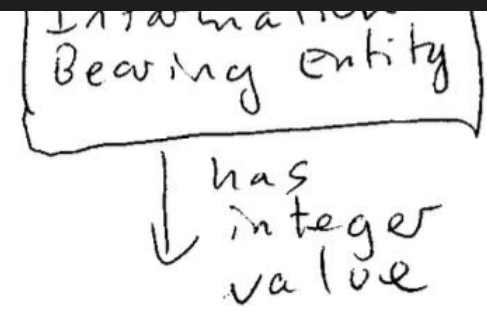 Information
Bearing Entity
has
integer
value